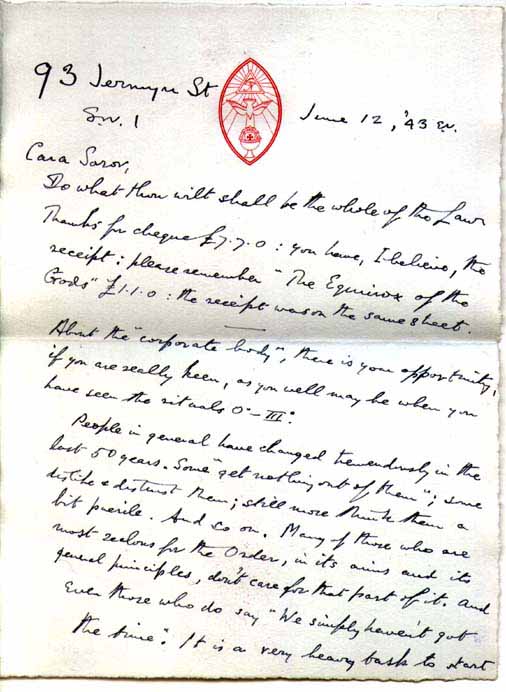 93 Jermyn St
S.W. 1
June 12, '43 e.v.
Cara Soror,
Do what thou wilt shall be the whole of the Law
Thanks for cheque £7.7.0 : you have, I believe, the
receipt : please remember "The Equinox of the
Gods" £1.1.0 : the receipt was on the same sheet.
About the "corporate body", there is your opportunity,
if you are really keen, as you well may be when you
have seen the rituals 0°–III°.
People in general have changed tremendously in the
last 50 years. Some "get nothing out of them"; some
dislike & distrust them; still more think them a
bit puerile. And so on. Many of those who are
most zealous for the Order, in its aims and its
general principles, don't care for that part of it. And
even those who do say "We simply haven't got
the time". It is a very heavy task to start